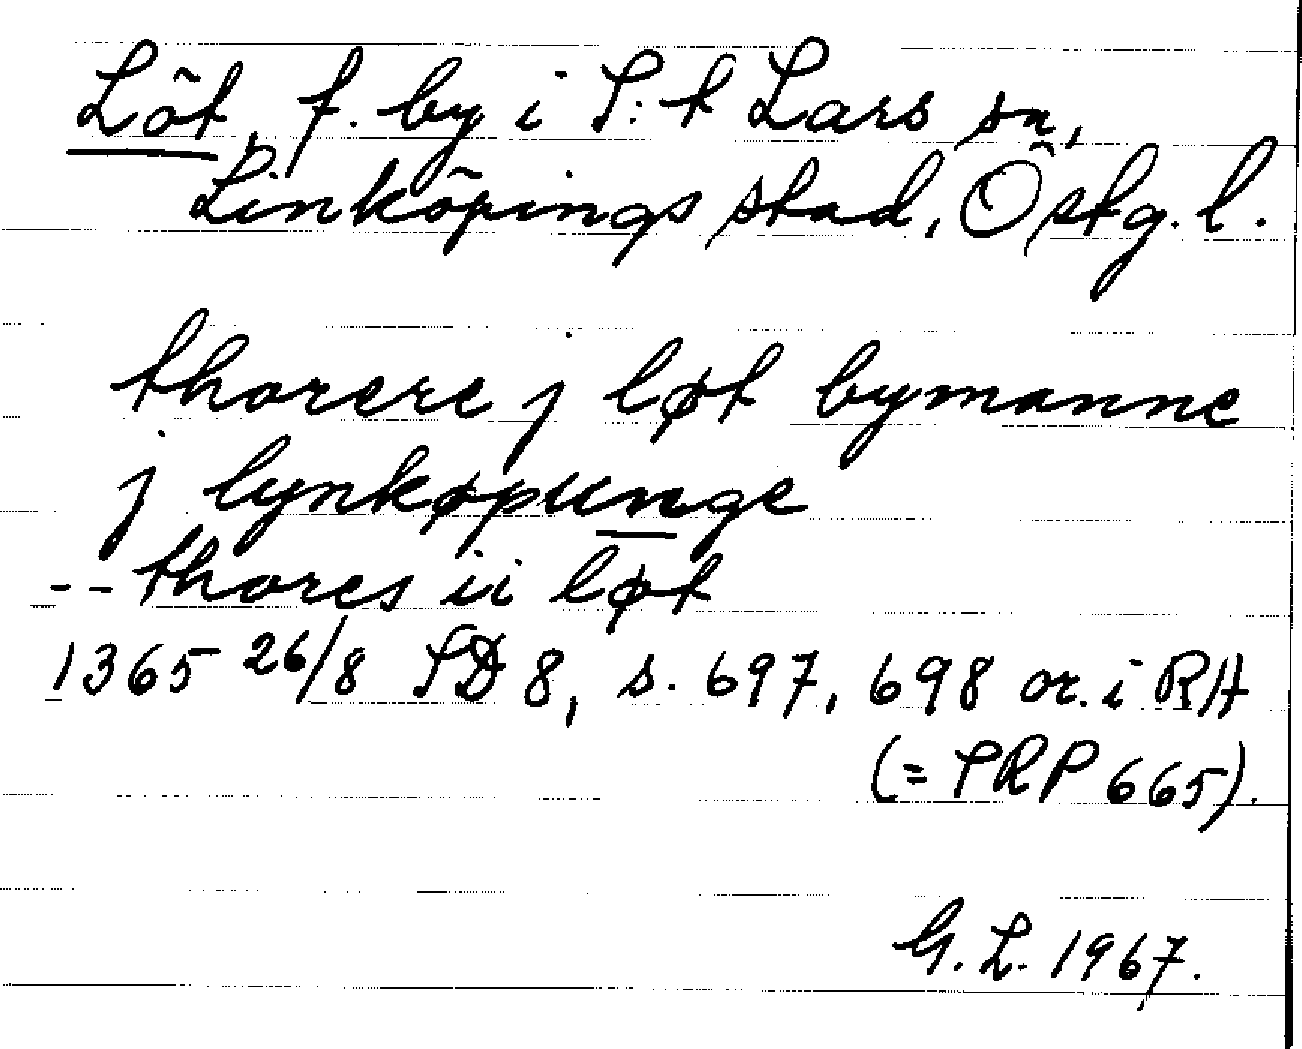 Löt, f. by i S:t Lars sn,
Linköpings stad, Östg. l.
thorere j løt bymanne
j lynkøpunge
-- thores ii løt
1365 26/8 SD 8, s. 697, 698 or. i RA
(= SRP 665).
G. L. 1967.